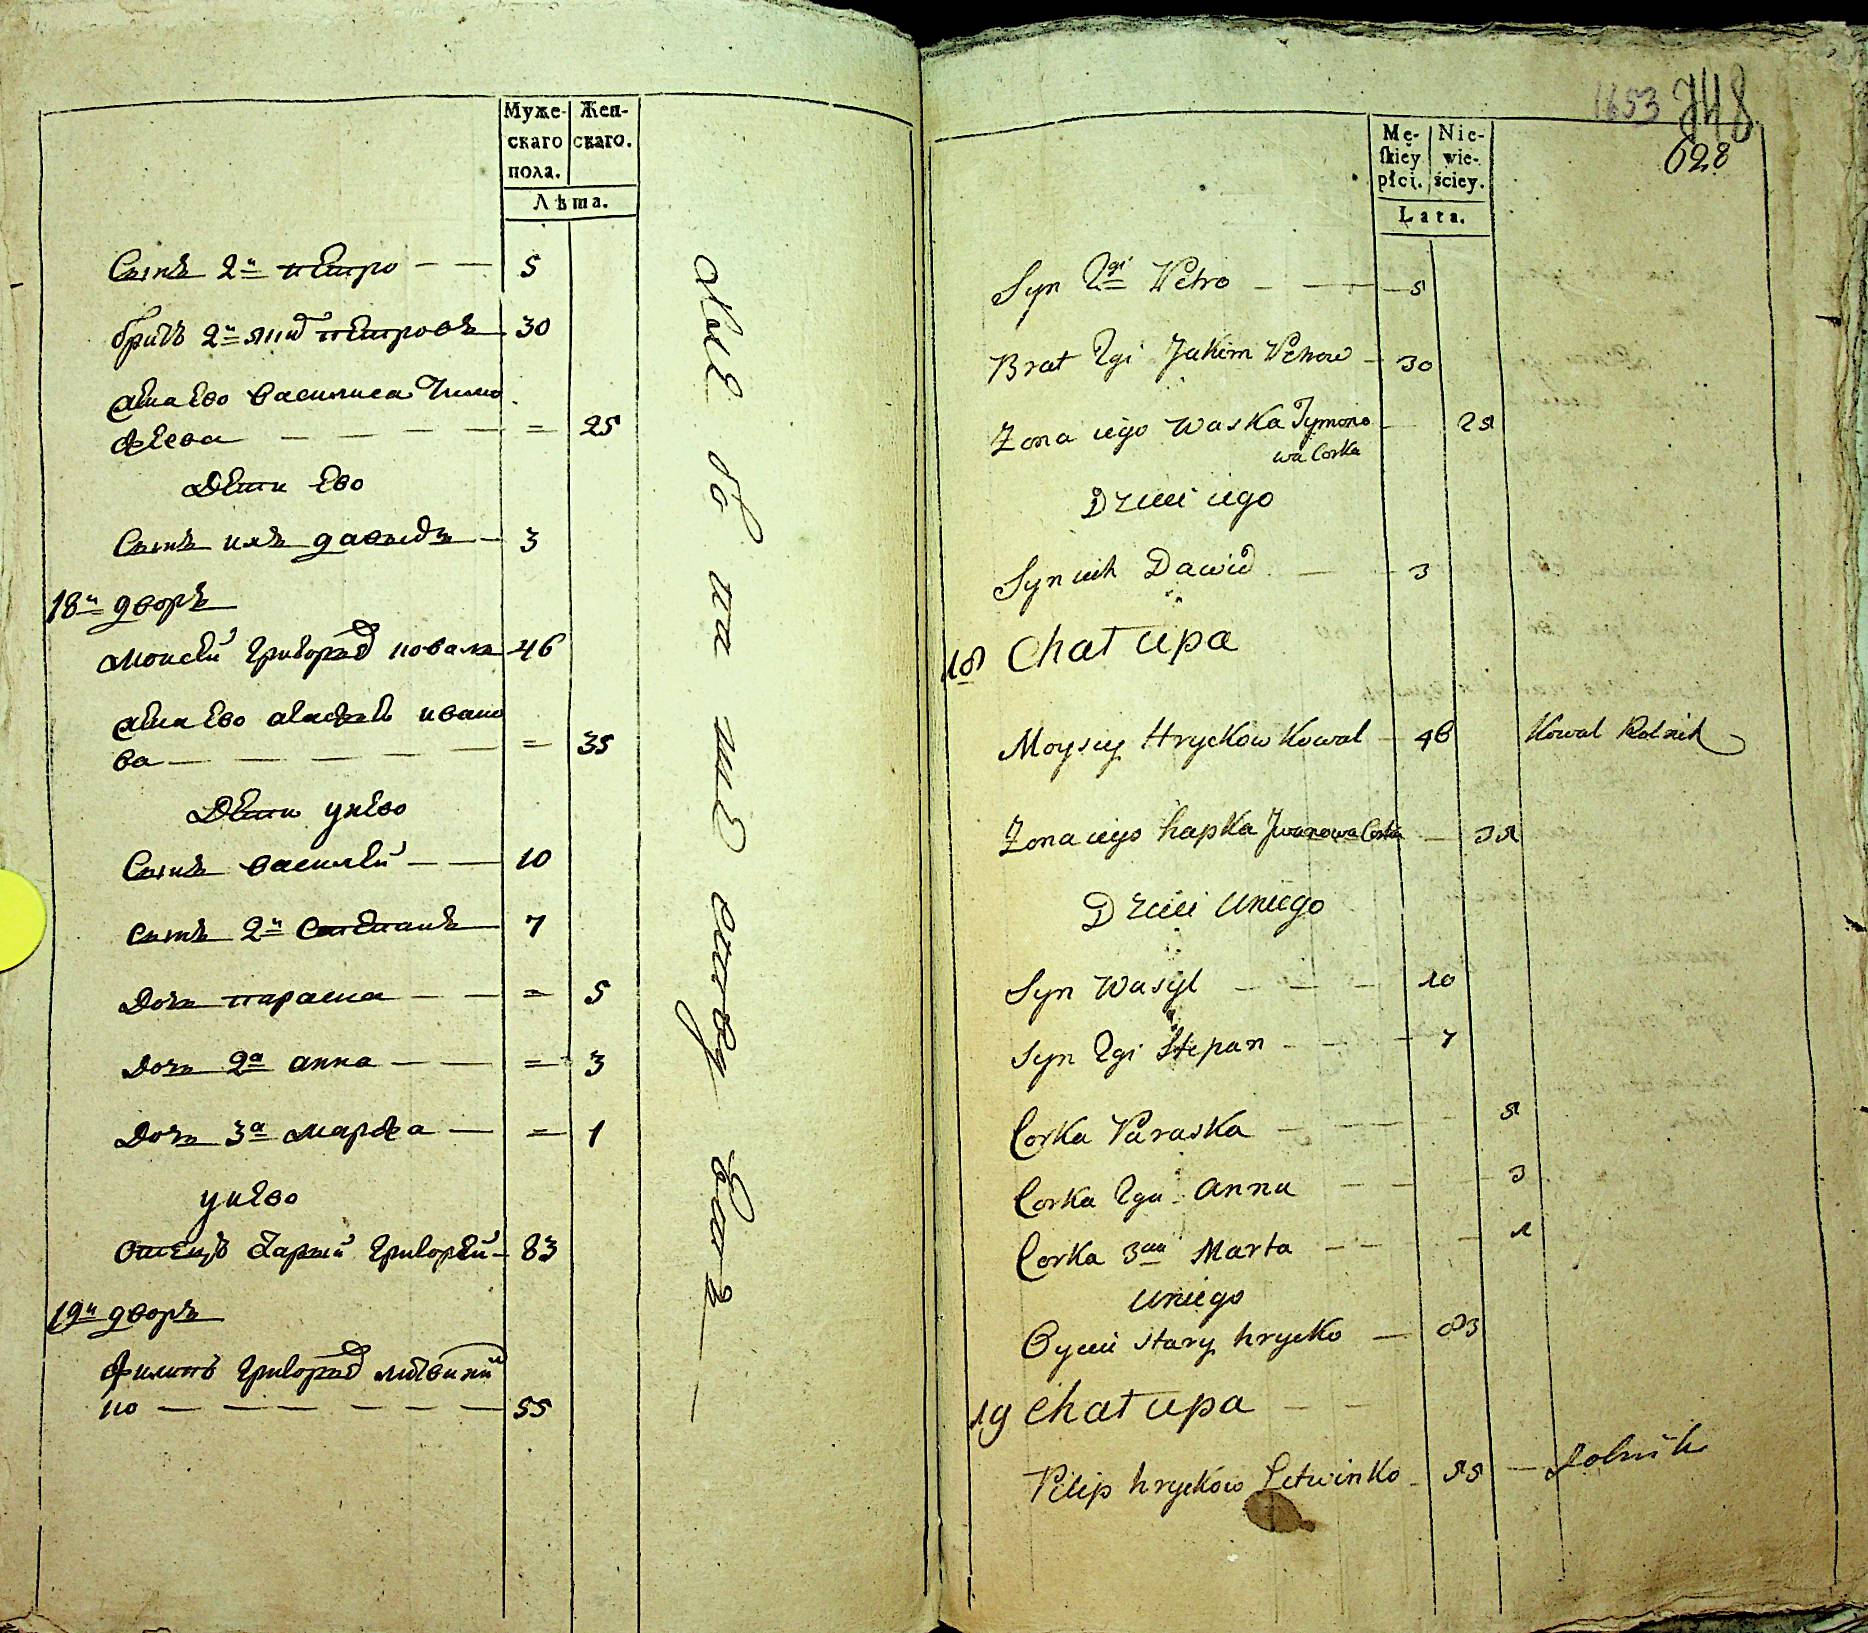 Муже-
скаго
пола.
Жен-
скаго.
Лѣта.
Сынъ 2й петро — — 5
братъ 2й яким петровъ 30
жена ево василиса Тимо
феева — — — — = 25
Дети ево
Сынъ ихъ давыдъ — 3
18й дворъ
моисей григорьев коваль 46
жена ево агафья ивано
ва — — — — = 35
Дети унево
Сынъ василей — — 10
сынъ 2й степанъ 7
Дочь параска — — = 5
Дочь 2а анна — — = 3
Дочь 3а марфа — = 1
унево
отецъ старый григорей — 83
19й дворъ
филипъ григорьев литвинен
ко — — — — — — 55
1653
748
628
Mę-
skiey
płci.
Nie-
wie-
ściey.
Lata.
Syn 2gi Petro — — — 5
Brat 2gi Jakim Petrow — 30
Zona iego Waska Tymono — 25
wa Corka
Dzieci iego
Syn ich Dawid — — 3
18 Chałupa
Moysiey Hryckow Kowal — 46 Kowal Rolnik
Zona iego hapka Jwanowa Corka — 35
Dzieci Uniego
Syn Wasyl — — — 10
Syn 2gi Stepan — — — 7
Corka Paraska — — — 5
Corka 2ga Anna — — — 3
Corka 3cia Marta — — — 1
Uniego
Oyciec stary hrycko — 83
19 Chałupa — —
Pilip hryckow Letwinko — 55 — Rolnik